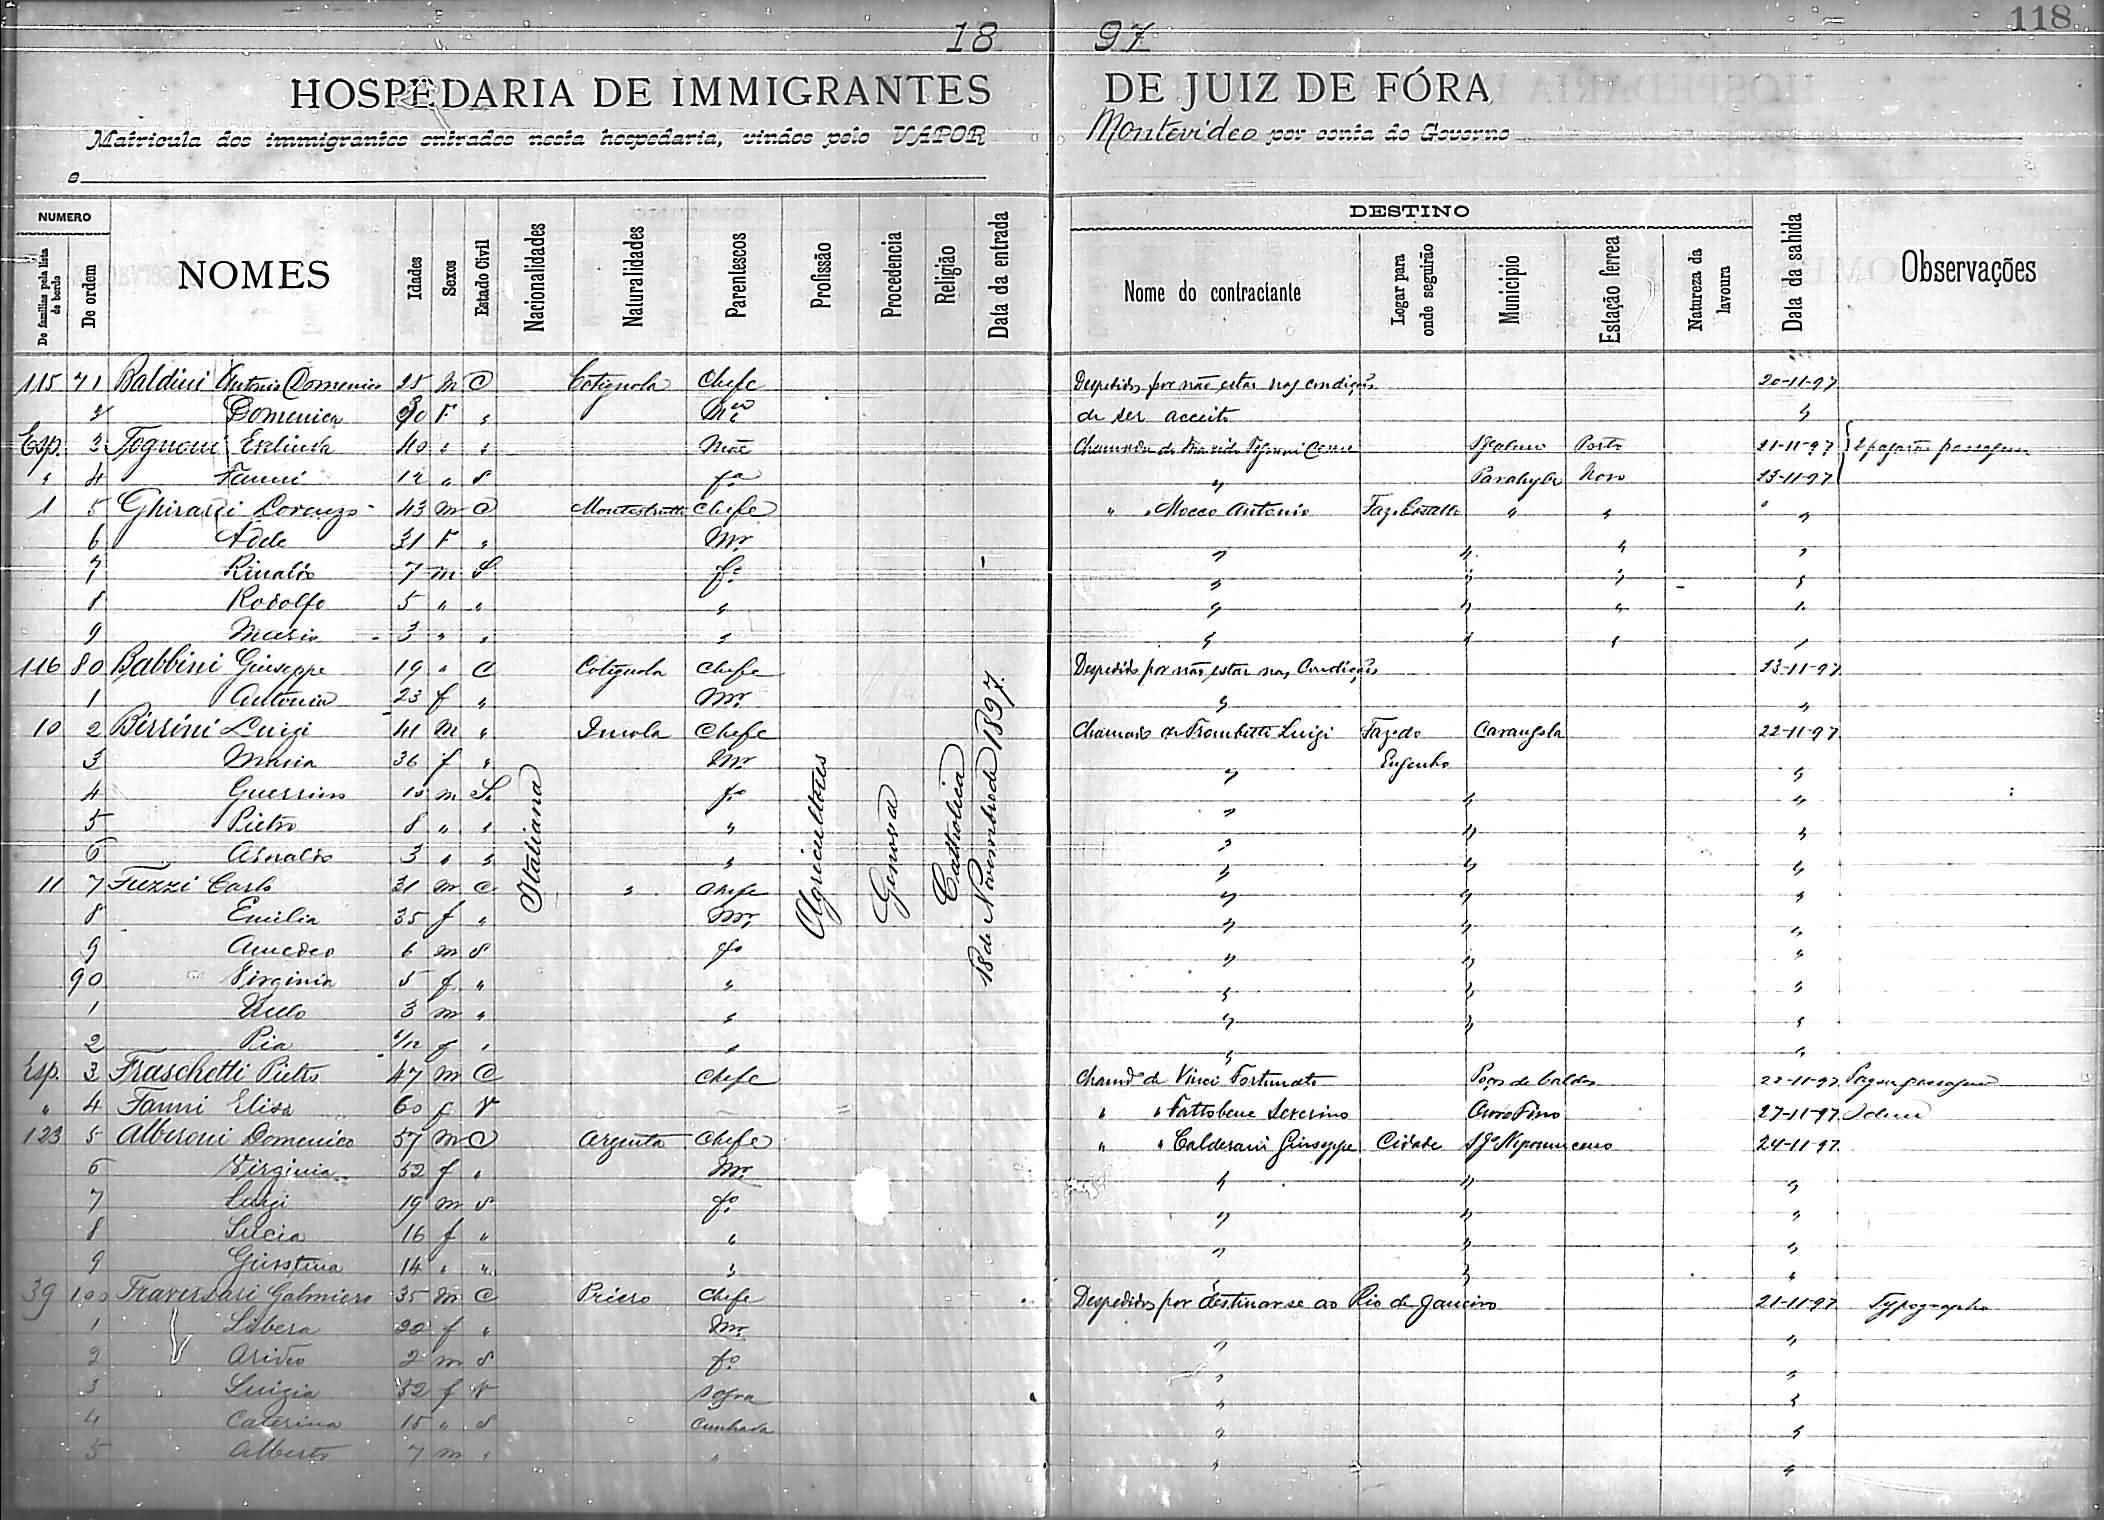 18 97
118
HOSPEDARIA DE IMMIGRANTES DE JUIZ DE FÓRA
Matricula dos immigrantes entrados nesta hospedaria, vindos pelo VAPOR Montevideo por conta do Governo
e
NUMERO
De familias pela lista de bordo
De ordem
NOMES
Idades
Sexos
Estado Civil
Nacionalidades
Naturalidades
Parentescos
Profissão
Procedencia
Religião
Data da entrada
DESTINO
Nome do contractante
Logar para onde seguirão
Municipio
Estação ferrea
Natureza da lavoura
Data da sahida
Observações
Italiana
Agricultores
Genova
Catholica
18 de Novembro de 1897.
115 71 Baldini Antonio Domenico 25 m C Cotignola Chefe Despedidos por não estar nas condições 20-11-97
2 Domenica F " Mer de ser acceito "
Esp. 3 Tognoni 40 " " Mãe Porto 21-11-97 2 pagarão passagem
" 4 Fanni 12 " S fa " Parahyba Novo 23-11-97
1 5 Ghirardi Lorenzo 43 m C Chefe " " Mocco Antonio " " "
6 Adele 31 F " Mer " " " "
7 Rinaldo 7 m S fo " " " "
8 Rodolfo 5 " " " " " " "
9 Mario 3 " " " " " " "
116 80 Babbini Giuseppe 19 " C Cotignola Chefe Despedidos por não estar nas Condições 23-11-97
1 Antonia 23 f " Mer " "
10 2 Birrini Luigi 41 m " Imola Chefe Chamado de Trombetti Luigi Faz. do Carangola 22-11-97
3 Maria 36 f " Mer " Engenho "
4 Guerrino 10 m S. fo " " "
5 Pietro 8 " " " " " "
6 Arnaldo 3 " " " " " "
11 7 Fuzzi Carlo 31 m C " Chefe " " "
8 Emilia 35 f " Mer " " "
9 Amedeo 6 m S fo " " "
90 Virginia 5 f " " " " "
1 3 m " " " " "
2 Pia 1/12 f " " " "
Esp. 3 Fraschetti Pietro 47 m C Chefe Chamdo de Vinci Fortunato Poços de Caldas 22-11-97 Pagou passagem
" 4 Fanni Elisa 60 f V " " Fattobene Severino Ouro Fino 27-11-97 Idem
123 5 Alberoni Domenico 57 m C Argenta Chefe " " Calderani Giuseppe Cidade S. Jo Nepomuceno 24-11-97.
6 Virginia 52 f " Mer " " "
7 Luigi 19 m S fo " " "
8 Lucia 16 f " " " " "
9 Giustina 14 " " " " " "
39 100 Traversari Galmiero 35 m C Chefe Despedidos por destinar-se ao Rio de Janeiro 21-11-97 Typographo
1 Libera 20 f " Mer " "
2 Arideo 2 m S fo " "
3 Luigia 52 f V sogra " "
4 Caterina 15 " S Cunhada " "
5 Alberto 7 m " " " "